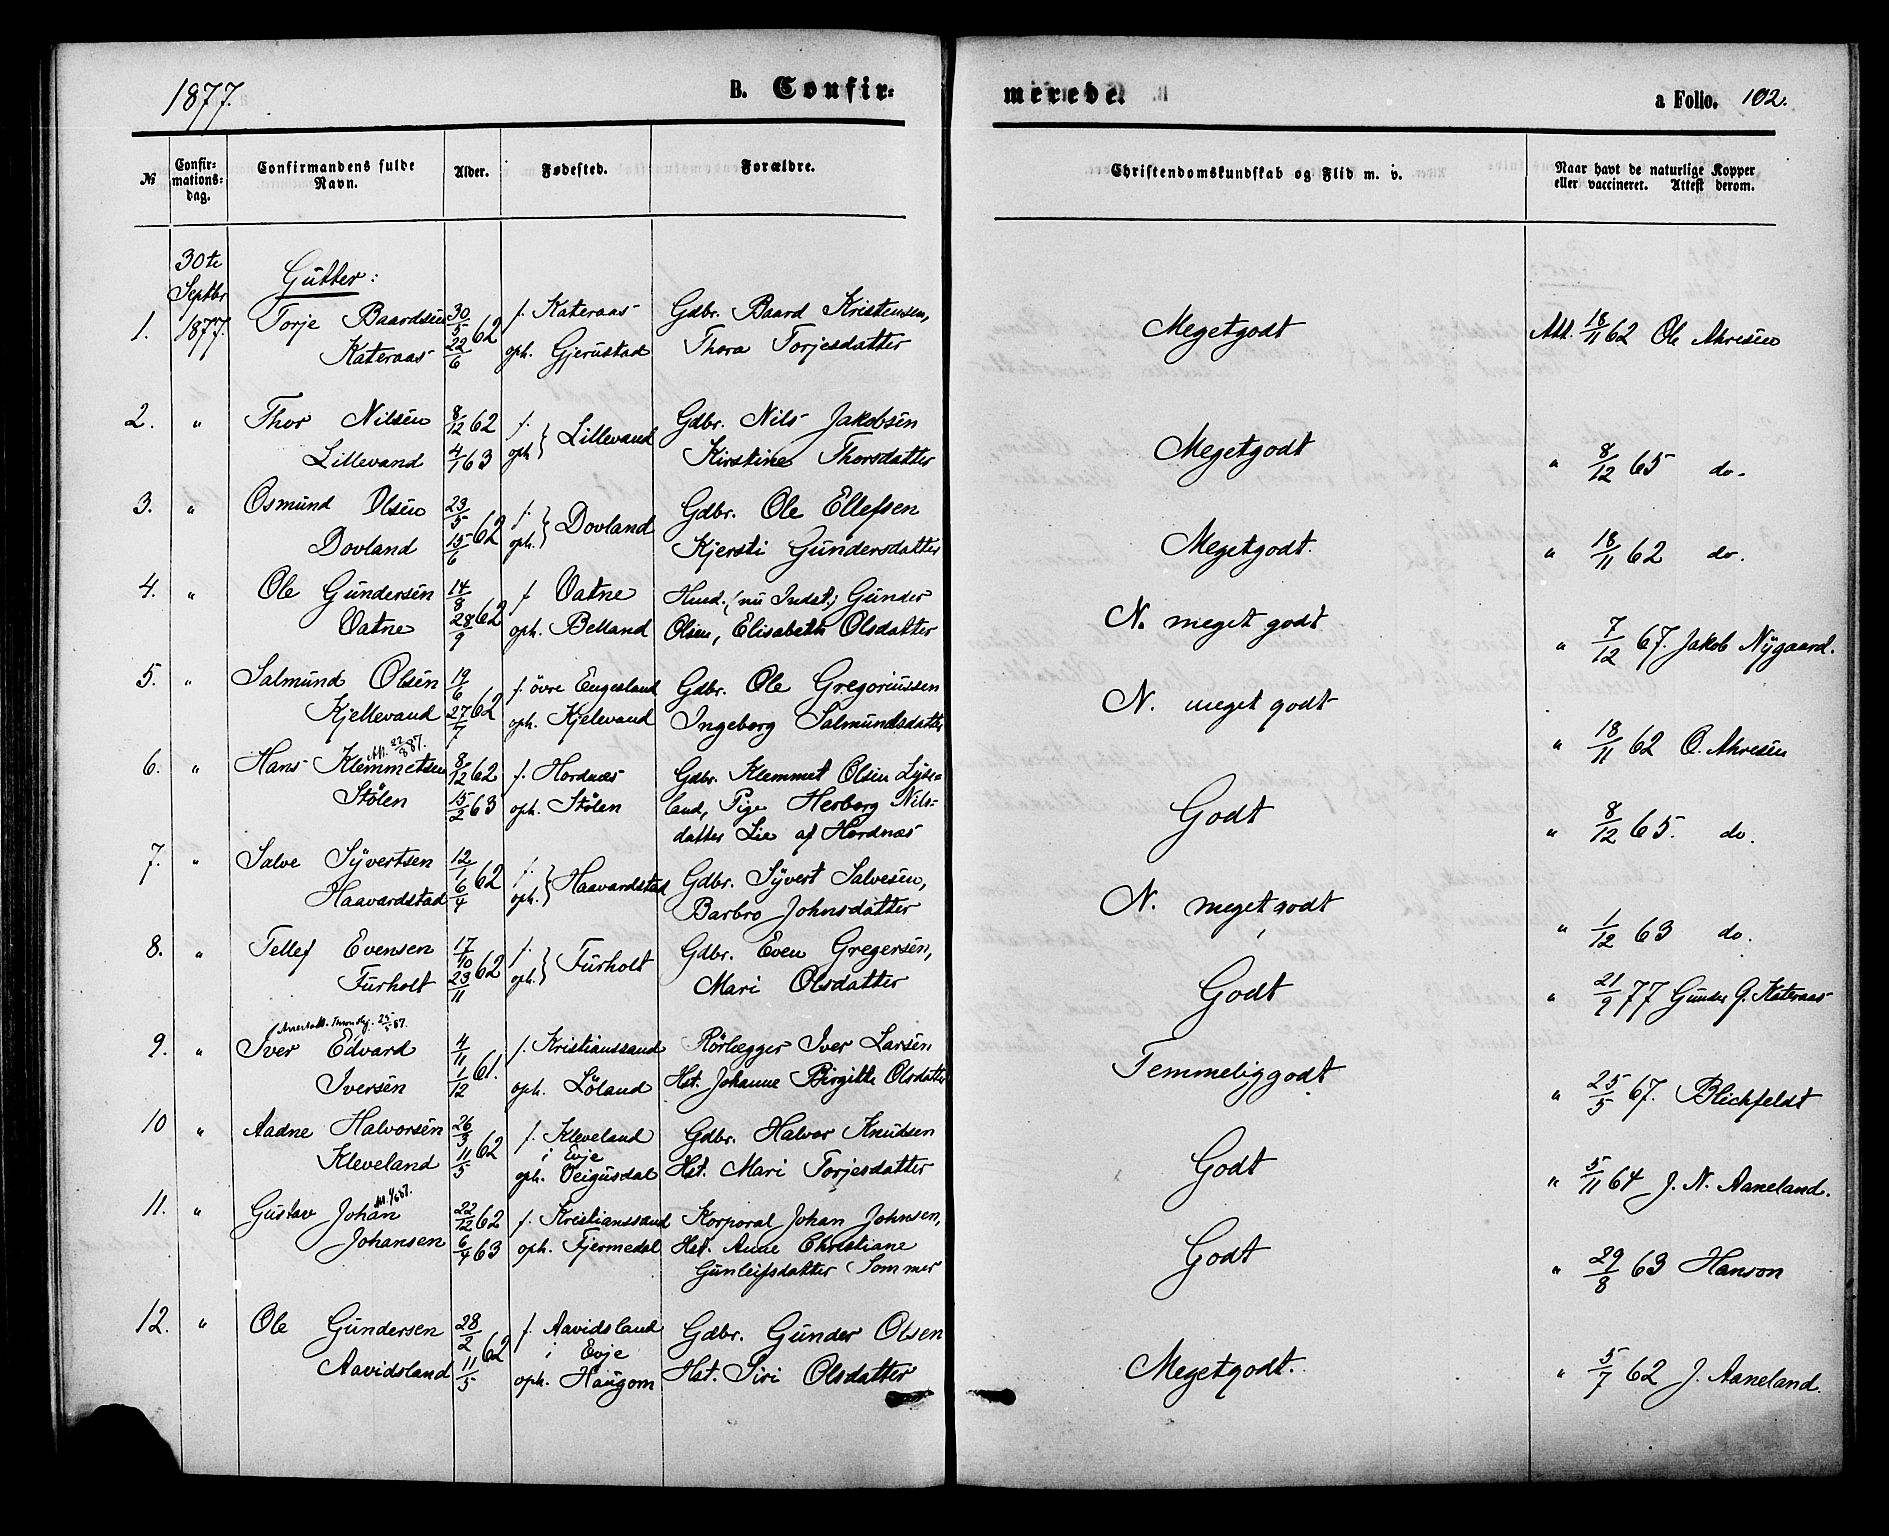 1877. B. Confir= merede. a Folio. 102.
№ Confir=mations=dag. Confirmandens fulde Navn. Alder. Fødested. Forældre. Christendomskundskab og Flid m. v. Naar havt de naturlige Kopper eller vaccineret. Attest derom.
30te Septbr 1877.
Gutter:
1. Torje Baardsen 30/5 62 f. Kateraas Gdbr. Baard Kristensen, Megetgodt Att. 18/11 62 Ole Ahresen
Kateraas 22/6 oph. Gjerustad Thora Torjesdatter
2. " Thor Nilsen 8/12 62 f. Lillevand Gdbr. Nils Jakobsen Megetgodt " 8/12 65 do.
Lillevand 4/1 63 oph. Kirstine Thorsdatter
3. " Osmund Olsen 23/5 62 f. Dovland Gdbr. Ole Ellefsen Megetgodt. " 18/11 62 do.
Dovland 15/6 oph. Kjersti Gundersdatter
4. " Ole Gundersen 14/8 62 f. Vatne Husd. (nu Indst.) Gunder N. meget godt " 7/12 67. Jakob Nygaard.
Vatne 28/9 oph. Belland Olsen, Elisabeth Olsdatter
5. " Salmund Olsen 19/6 62 f. övre Engesland Gdbr. Ole Gregoriussen N. meget godt " 18/11 62 O. Ahresen
Kjellevand 27/7 oph. Kjelevand Ingeborg Salmundsdatter
Att. 22/8 87.
6. " Hans Klemmetsen 8/12 62 f. Hordnæs Gdbr. Klemmet Olsen Lyse= Godt " 8/12 65. do.
Stölen 15/2 63 oph. Stölen land, Pige Herborg Nils=
datter Lie af Hordnæs
7. " Salve Syvertsen 12/1 62 f. Haavardstad Gdbr. Syvert Salvesen, N. meget godt " 1/12 63 do.
Haavardstad 6/4 oph. Barbro Johnsdatter
8. " Tellef Evensen 17/10 62 f. Furholt Gdbr. Even Gregersen, Godt " 21/9 77 Gunder G. Kateraas
Furholt 23/11 oph. Mari Olsdatter
25/5 87.
9. " Iver Edvard 4/11 61. f. Kristianssand Rörlægger Iver Larsen Temmeliggodt " 25/5 67. Blichfeldt
Iversen 1/12 oph. Löland Hst. Johanne Birgitte Olsdatter
10 " Aadne Halvorsen 26/3 62 f. Kleveland i Evje Gdbr. Halvor Knudsen Godt " 5/11 64 J. N. Aaneland.
Kleveland 11/5 oph. Veigusdal Hst. Mari Torjesdatter
11. " Gustav Johan 22/12 62 f. Kristianssand Korporal Johan Johnsen, Godt " 29/8 63 Hanson
Johansen 6/4 63 oph. Fjermedal Hst. Anne Christiane
Gunleifsdatter Sommer
12. " Ole Gundersen 28/2 62 f. Aavidsland i Evje Gdbr. Gunder Olsen Megetgodt. " 5/7 62 J. Aaneland.
Aavidsland 11/5 oph. Haugom Hst. Siri Olsdatter